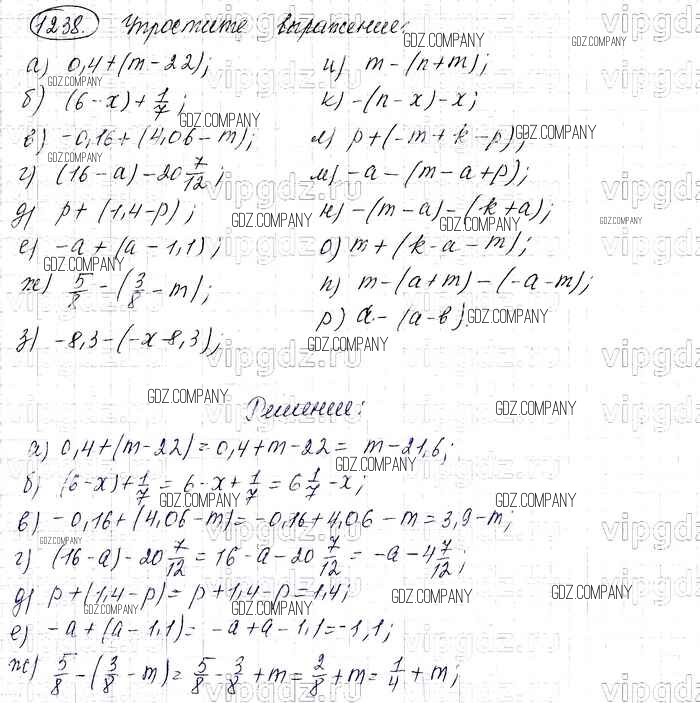 1238. Упростите выражение:
а) 0,4+(m-22);
б) (6-x)+1/7;
в) -0,16+(4,06-m);
г) (16-a)-20 7/12;
д) p+(1,4-p);
е) -a+(a-1,1);
ж) 5/8-(3/8-m);
з) -8,3-(-x-8,3);
и) m-(n+m);
к) -(n-x)-x;
л) p+(-m+k-p);
м) -a-(m-a+p);
н) -(m-a)-(k+a);
о) m+(k-a-m);
п) m-(a+m)-(-a-m);
р) a-(a-в)
Решение:
а) 0,4+(m-22)=0,4+m-22= m-21,6;
б) (6-x)+1/7=6-x+1/7=6 1/7-x;
в) -0,16+(4,06-m)=-0,16+4,06-m=3,9-m;
г) (16-a)-20 7/12=16-a-20 7/12=-a-4 7/12;
д) p+(1,4-p)=p+1,4-p=1,4;
е) -a+(a-1,1)=-a+a-1,1=-1,1;
ж) 5/8-(3/8-m)=5/8-3/8+m=2/8+m=1/4+m;
GDZ.COMPANY
vipgdz.ru